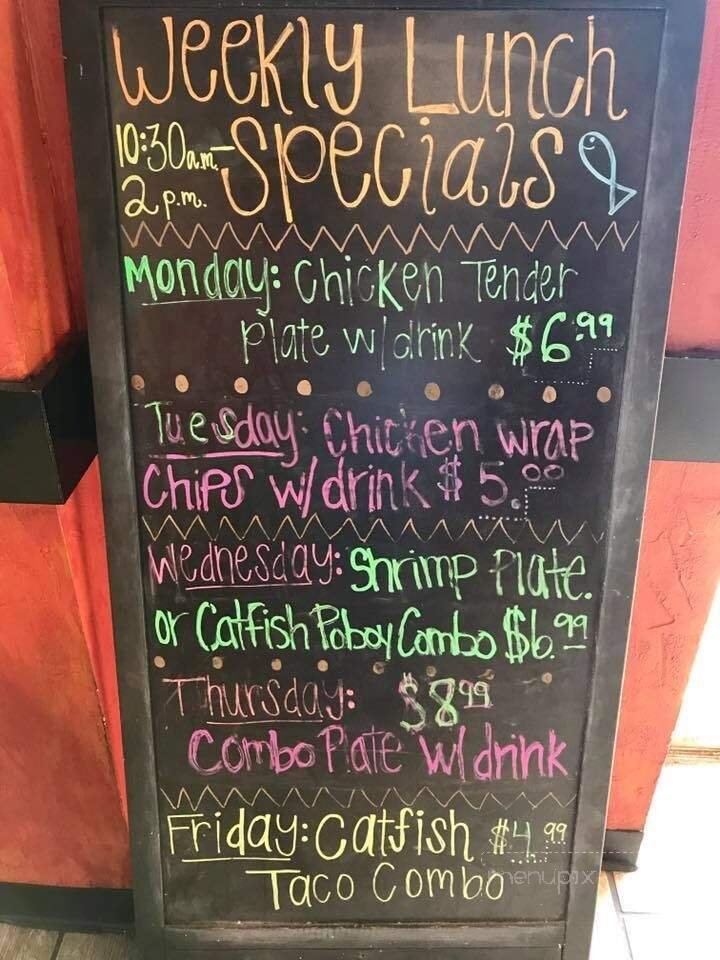 Weekly Lunch
10:30a.m.- Specials
2 p.m.
Monday: Chicken Tender
Plate w/drink $6.99
Tuesday: Chicken wrap
Chips w/drink $5.00
Wednesday: Shrimp Plate.
or Catfish Poboy Combo $6.99
Thursday: $8.99
Combo Plate w/drink
Friday: Catfish $4.99
Taco Combo
menupix